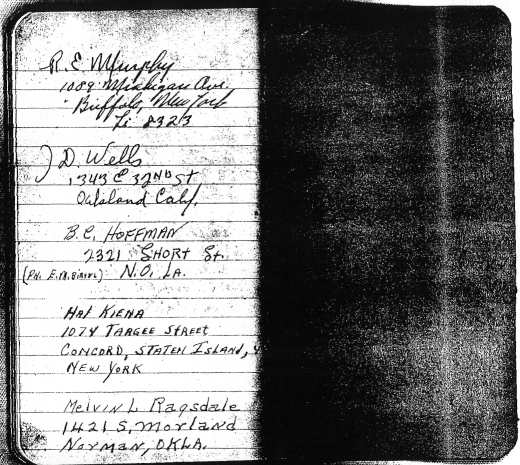 R. E. Murphy
1089 Michigan Ave.
Buffalo, New York
8323
J D. Wells
1343 E 32ND St
Oakland Calif.
B. C. HOFFMAN
2321 SHORT St.
N.O. LA.
HAL KIENA
1074 TARGEE STREET
CONCORD, STATEN ISLAND,
NEW YORK
Melvin L Ragsdale
1421 S. Morland
Norman, OKLA.